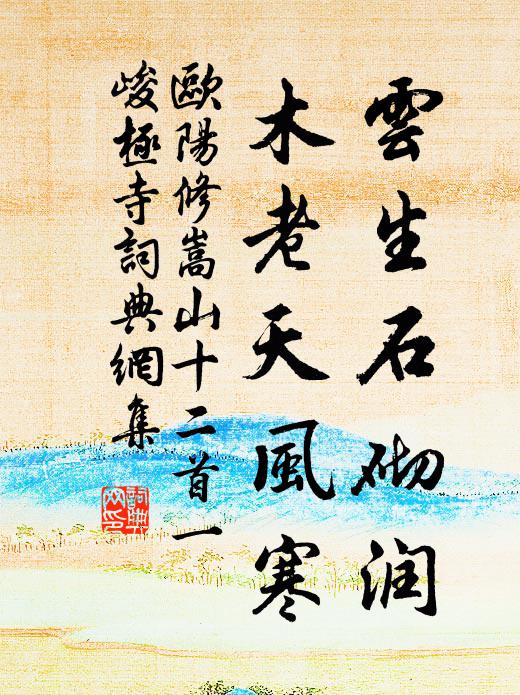 雲生石砌润
木老天風寒
歐陽修嵩山十二首一
峻極寺詞典網集
詞典網印